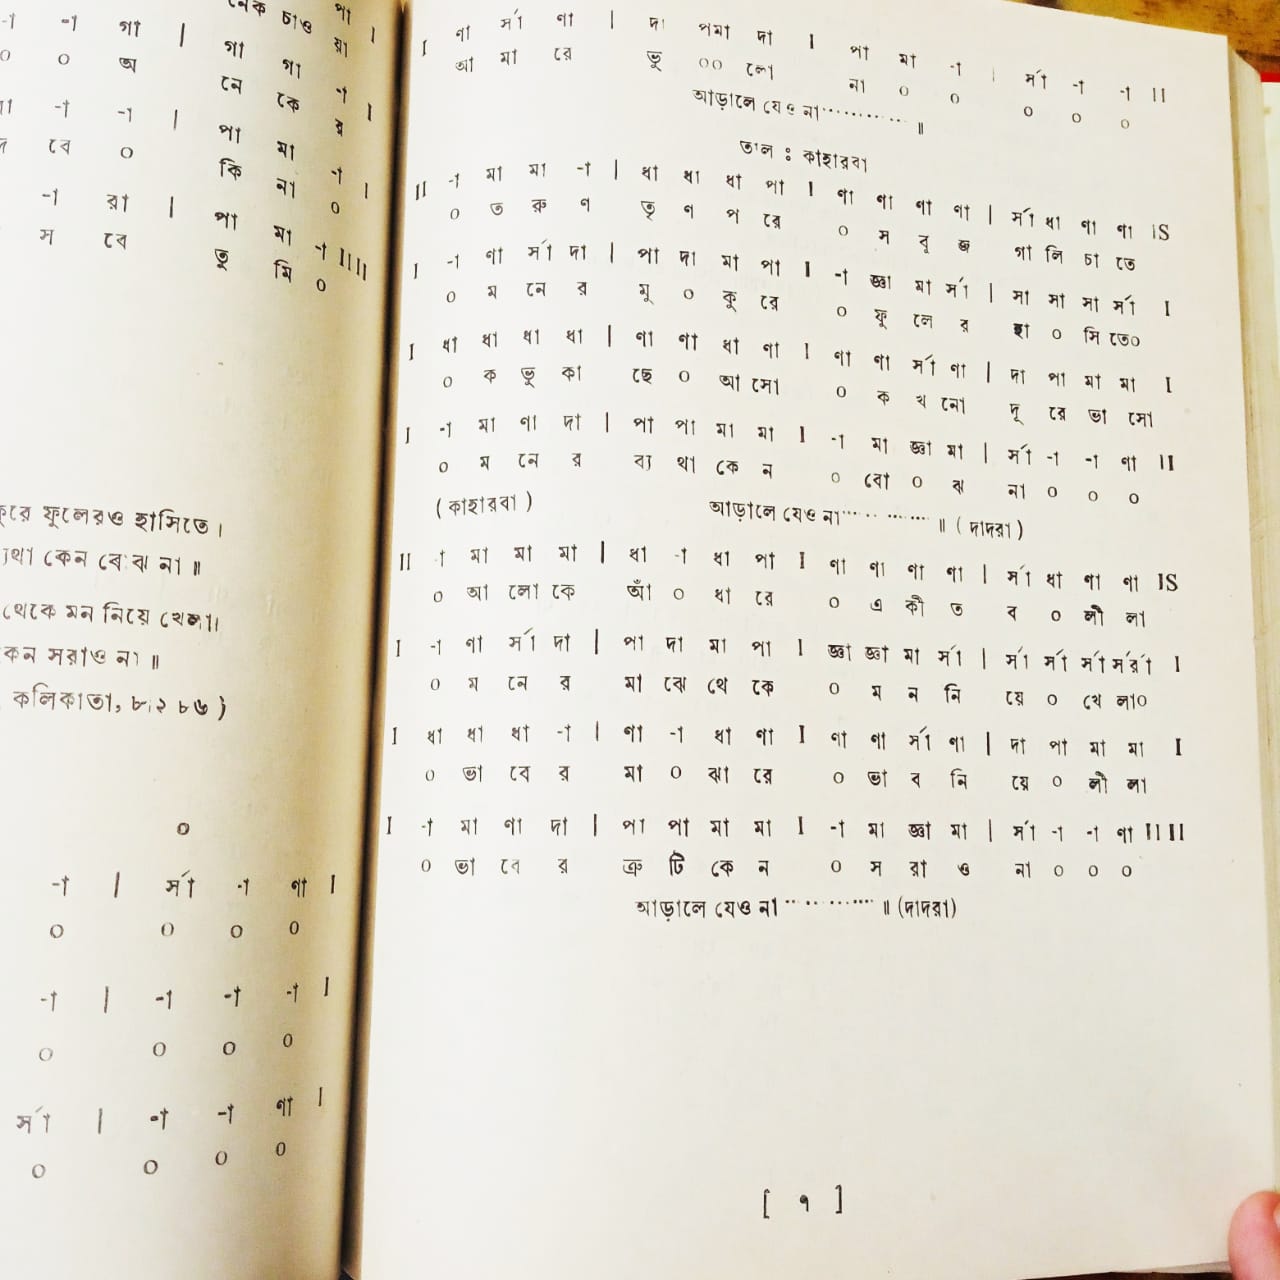 নেক চাও পা I
-া -া গা | গা গা য়া
০ ০ অ নে কে -া I
-া -া | পা মা র
বে ০ কি না -া I
-া রা | পা মা ০
স বে তু মি -া IIII
০
ফুলেরও হাসিতে।
কেন বোঝ না ॥
থেকে মন নিয়ে খেলা।
কেন সরাও না ॥
কলিকাতা, ৮.২ ৮৬)
০
-া | র্সা -া ণা I
০ ০ ০ ০
-া | -া -া -া I
০ ০ ০ ০
র্সা | -া -া ণা I
০ ০ ০ ০
I ণা র্সা ণা | দা পমা দা I পা মা -া | র্সা -া -া II
আ মা রে ভু ০০ লো না ০ ০ ০ ০ ০
আড়ালে যেও না............ ॥
তাল : কাহারবা
II -া মা মা -া | ধা ধা ধা পা I ণা ণা ণা ণা | র্সা ধা ণা ণা IS
০ ত রু ণ তৃ ণ প রে ০ স বু জ গা লি চা তে
I -া ণা র্সা দা | পা দা মা পা I -া জ্ঞা মা র্সা | মা মা মা র্সা I
০ ম নে র মু ০ কু রে ০ ফু লে র হা ০ সি তে০
I ধা ধা ধা ধা | ণা ণা ধা ণা I ণা ণা র্সা ণা | দা পা মা মা I
০ ক ভু কা ছে ০ আ সো ০ ক খ নো দূ রে ভা সো
I -া মা ণা দা | পা পা মা মা I -া মা জ্ঞা মা | র্সা -া -া ণা II
০ ম নে র ব্য থা কে ন ০ বো ০ ঝ না ০ ০ ০
(কাহারবা) আড়ালে যেও না............ ॥ (দাদরা)
II -া মা মা মা | ধা -া ধা পা I ণা ণা ণা ণা | র্সা ধা ণা ণা IS
০ আ লো কে আঁ ০ ধা রে ০ এ কী ত ব ০ লী লা
I -া ণা র্সা দা | পা দা মা পা I জ্ঞা জ্ঞা মা র্সা | র্সা র্সা র্সা র্সর্রা I
০ ম নে র মা ঝে থে কে ০ ম ন নি য়ে ০ খে লা০
I ধা ধা ধা -া | ণা -া ধা ণা I ণা ণা র্সা ণা | দা পা মা মা I
০ ভা বে র মা ০ ঝা রে ০ ভা ব নি য়ে ০ লী লা
I -া মা ণা দা | পা পা মা মা I -া মা জ্ঞা মা | র্সা -া -া ণা IIII
০ ভা বে র ত্রু টি কে ন ০ স রা ও না ০ ০ ০
আড়ালে যেও না............ ॥ (দাদরা)
[ ৭ ]